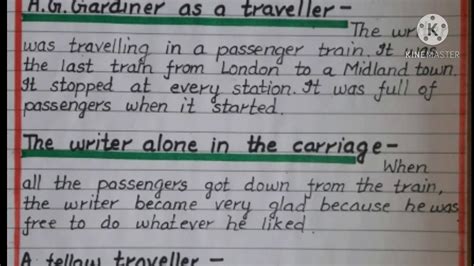 A.G. Gardiner as a traveller-
The wri
was travelling in a passenger train. It was
the last train from London to a Midland town.
It stopped at every station. It was full of
passengers when it started.
The writer alone in the carriage-
When
all the passengers got down from the train,
the writer became very glad because he was
free to do whatever he liked.
A fellow traveller-
K
KINEMASTER